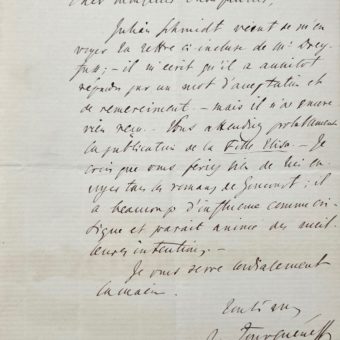 Cher Monsieur Charpentier,
Julian Schmidt vient de m'en
voyer la lettre ci incluse de Mr Drey-
fus; – il m'écrit qu'il a aussitôt
répondu par un mot d'acceptation et
de remerciment. – mais il n'a encore
rien reçu. – Vous attendiez probablement
la publication de la Fille Elisa. – Je
crois que vous feriez bien de lui en-
voyer tous les romans de Goncourt; il
a beaucoup d'influence comme cri-
tique et paraît animé des meil-
leures intentions. –
Je vous serre cordialement
la main.
Tourguéneff